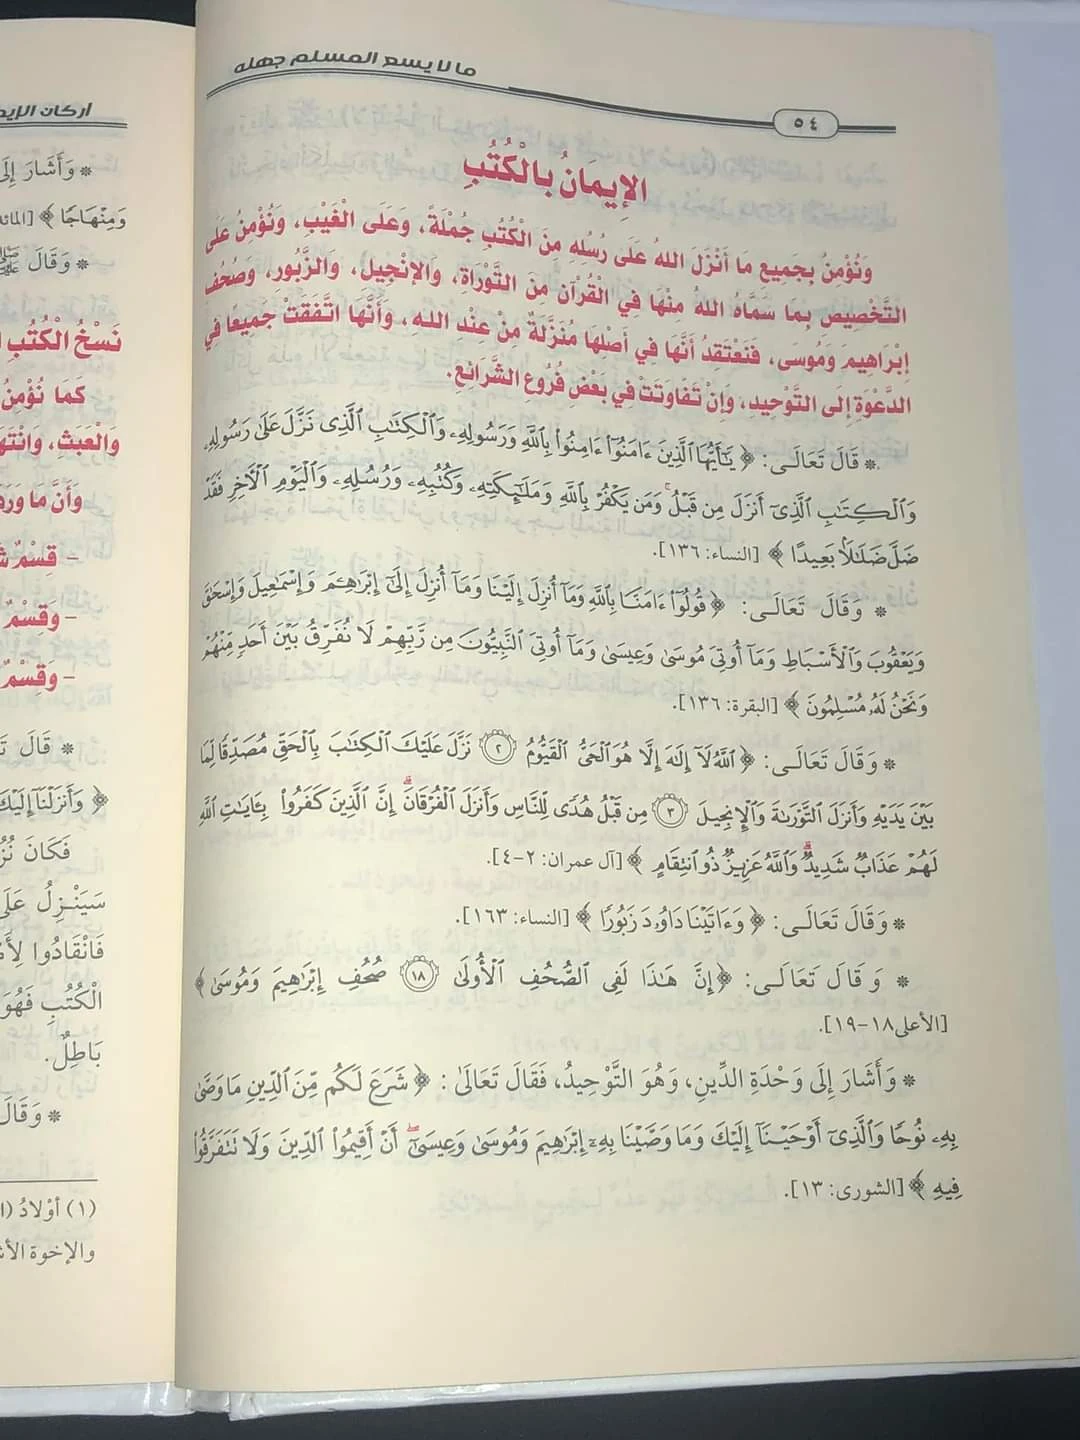 ما لا يسع المسلم جهله
٥٤
الإِيمَانُ بِالْكُتُبِ
وَنُؤْمِنُ بِجَمِيعِ مَا أَنْزَلَ اللهُ عَلَى رُسُلِهِ مِنَ الْكُتُبِ جُمْلَةً، وَعَلَى الْغَيْبِ، وَنُؤْمِنُ عَلَى
التَّخْصِيصِ بِمَا سَمَّاهُ اللهُ مِنْهَا فِي الْقُرْآنِ مِنَ التَّوْرَاةِ، وَالإِنْجِيلِ، وَالزَّبُورِ، وَصُحُفِ
إِبْرَاهِيمَ وَمُوسَى، فَنَعْتَقِدُ أَنَّهَا فِي أَصْلِهَا مُنَزَّلَةٌ مِنْ عِنْدِ اللهِ، وَأَنَّهَا اتَّفَقَتْ جَمِيعًا فِي
الدَّعْوَةِ إِلَى التَّوْحِيدِ، وَإِنْ تَفَاوَتَتْ فِي بَعْضِ فُرُوعِ الشَّرَائِعِ.
* قَالَ تَعَالَى: ﴿ يَٰٓأَيُّهَا ٱلَّذِينَ ءَامَنُوٓاْ ءَامِنُواْ بِٱللَّهِ وَرَسُولِهِۦ وَٱلْكِتَٰبِ ٱلَّذِى نَزَّلَ عَلَىٰ رَسُولِهِۦ
وَٱلْكِتَٰبِ ٱلَّذِىٓ أَنزَلَ مِن قَبْلُ ۚ وَمَن يَكْفُرْ بِٱللَّهِ وَمَلَٰٓئِكَتِهِۦ وَكُتُبِهِۦ وَرُسُلِهِۦ وَٱلْيَوْمِ ٱلْأَخِرِ فَقَدْ
ضَلَّ ضَلَٰلًۢا بَعِيدًا ﴾ [النساء: ١٣٦].
* وَقَالَ تَعَالَى: ﴿ قُولُوٓاْ ءَامَنَّا بِٱللَّهِ وَمَآ أُنزِلَ إِلَيْنَا وَمَآ أُنزِلَ إِلَىٰٓ إِبْرَٰهِـۧمَ وَإِسْمَٰعِيلَ وَإِسْحَٰقَ
وَيَعْقُوبَ وَٱلْأَسْبَاطِ وَمَآ أُوتِىَ مُوسَىٰ وَعِيسَىٰ وَمَآ أُوتِىَ ٱلنَّبِيُّونَ مِن رَّبِّهِمْ لَا نُفَرِّقُ بَيْنَ أَحَدٍ مِّنْهُمْ
وَنَحْنُ لَهُۥ مُسْلِمُونَ ﴾ [البقرة: ١٣٦].
* وَقَالَ تَعَالَى: ﴿ ٱللَّهُ لَآ إِلَٰهَ إِلَّا هُوَ ٱلْحَىُّ ٱلْقَيُّومُ ٢ نَزَّلَ عَلَيْكَ ٱلْكِتَٰبَ بِٱلْحَقِّ مُصَدِّقًا لِّمَا
بَيْنَ يَدَيْهِ وَأَنزَلَ ٱلتَّوْرَىٰةَ وَٱلْإِنجِيلَ ٣ مِن قَبْلُ هُدًى لِّلنَّاسِ وَأَنزَلَ ٱلْفُرْقَانَ ۗ إِنَّ ٱلَّذِينَ كَفَرُواْ بِـَٔايَٰتِ ٱللَّهِ
لَهُمْ عَذَابٌ شَدِيدٌ ۗ وَٱللَّهُ عَزِيزٌ ذُو ٱنتِقَامٍ ﴾ [آل عمران: ٢-٤].
* وَقَالَ تَعَالَى: ﴿ وَءَاتَيْنَا دَاوُۥدَ زَبُورًا ﴾ [النساء: ١٦٣].
* وَقَالَ تَعَالَى: ﴿ إِنَّ هَٰذَا لَفِى ٱلصُّحُفِ ٱلْأُولَىٰ ١٨ صُحُفِ إِبْرَٰهِيمَ وَمُوسَىٰ ﴾
[الأعلى١٨-١٩].
* وَأَشَارَ إِلَى وَحْدَةِ الدِّينِ، وَهُوَ التَّوْحِيدُ، فَقَالَ تَعَالَىٰ: ﴿ شَرَعَ لَكُم مِّنَ ٱلدِّينِ مَا وَصَّىٰ
بِهِۦ نُوحًا وَٱلَّذِىٓ أَوْحَيْنَآ إِلَيْكَ وَمَا وَصَّيْنَا بِهِۦٓ إِبْرَٰهِيمَ وَمُوسَىٰ وَعِيسَىٰٓ ۖ أَنْ أَقِيمُواْ ٱلدِّينَ وَلَا تَتَفَرَّقُواْ
فِيهِ ﴾ [الشورى: ١٣].
أركان
* وَأَشَارَ
وَمِنْهَاجًا ﴾
* وَقَالَ ﷺ
نَسْخُ الْكُتُبِ
كَمَا نُؤْمِنُ
وَالْعَبَثِ،
وَأَنَّ مَا
- قِسْمٌ
- وَقِسْمٌ
- وَقِسْمٌ
* قَالَ
﴿ وَأَنزَلْنَآ إِلَيْكَ
فَكَانَ
سَيَنْزِلُ
فَانْقَادُوا
الْكُتُبِ فَهُوَ
بَاطِلٌ.
* وَقَالَ
(١) أَوْلَادُ
والإخوة